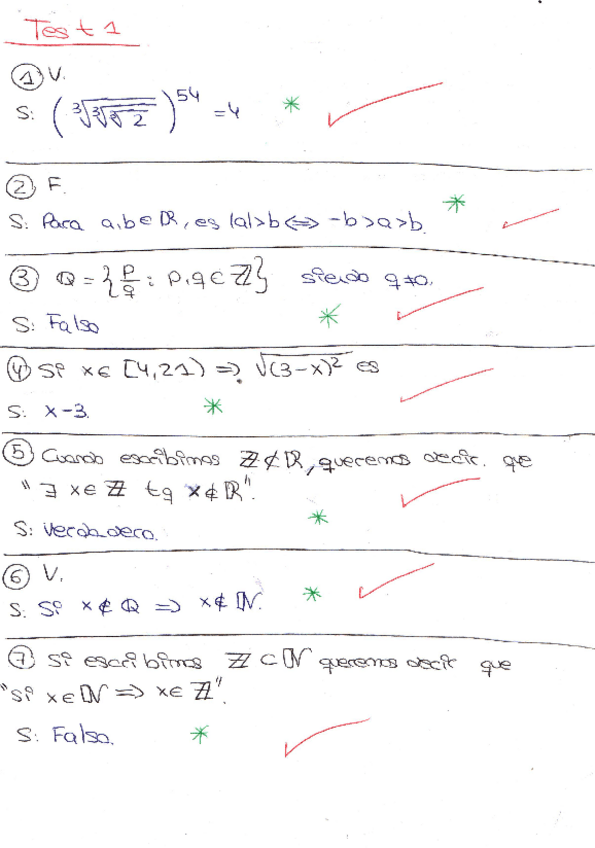 Test 1
① V.
S: (∛∛∛2)^54 = 4 *
② F. *
S: Para a,b ∈ ℝ, es |a|>b ⟺ -b>a>b.
③ Q = {p/q : p,q ∈ ℤ} siendo q≠0.
S: Falso *
④ Si x ∈ [4,21) ⟹ √(3-x)² es
S: x-3. *
⑤ Cuando escribimos ℤ ⊄ ℝ, queremos decir. que
"∃ x ∈ ℤ tq x ∉ ℝ".
S: Verdadero. *
⑥ V.
S: Si x ∉ Q ⟹ x ∉ ℕ. *
⑦ Si escribimos ℤ ⊂ ℕ queremos decir que
"si x ∈ ℕ ⟹ x ∈ ℤ".
S: Falso. *